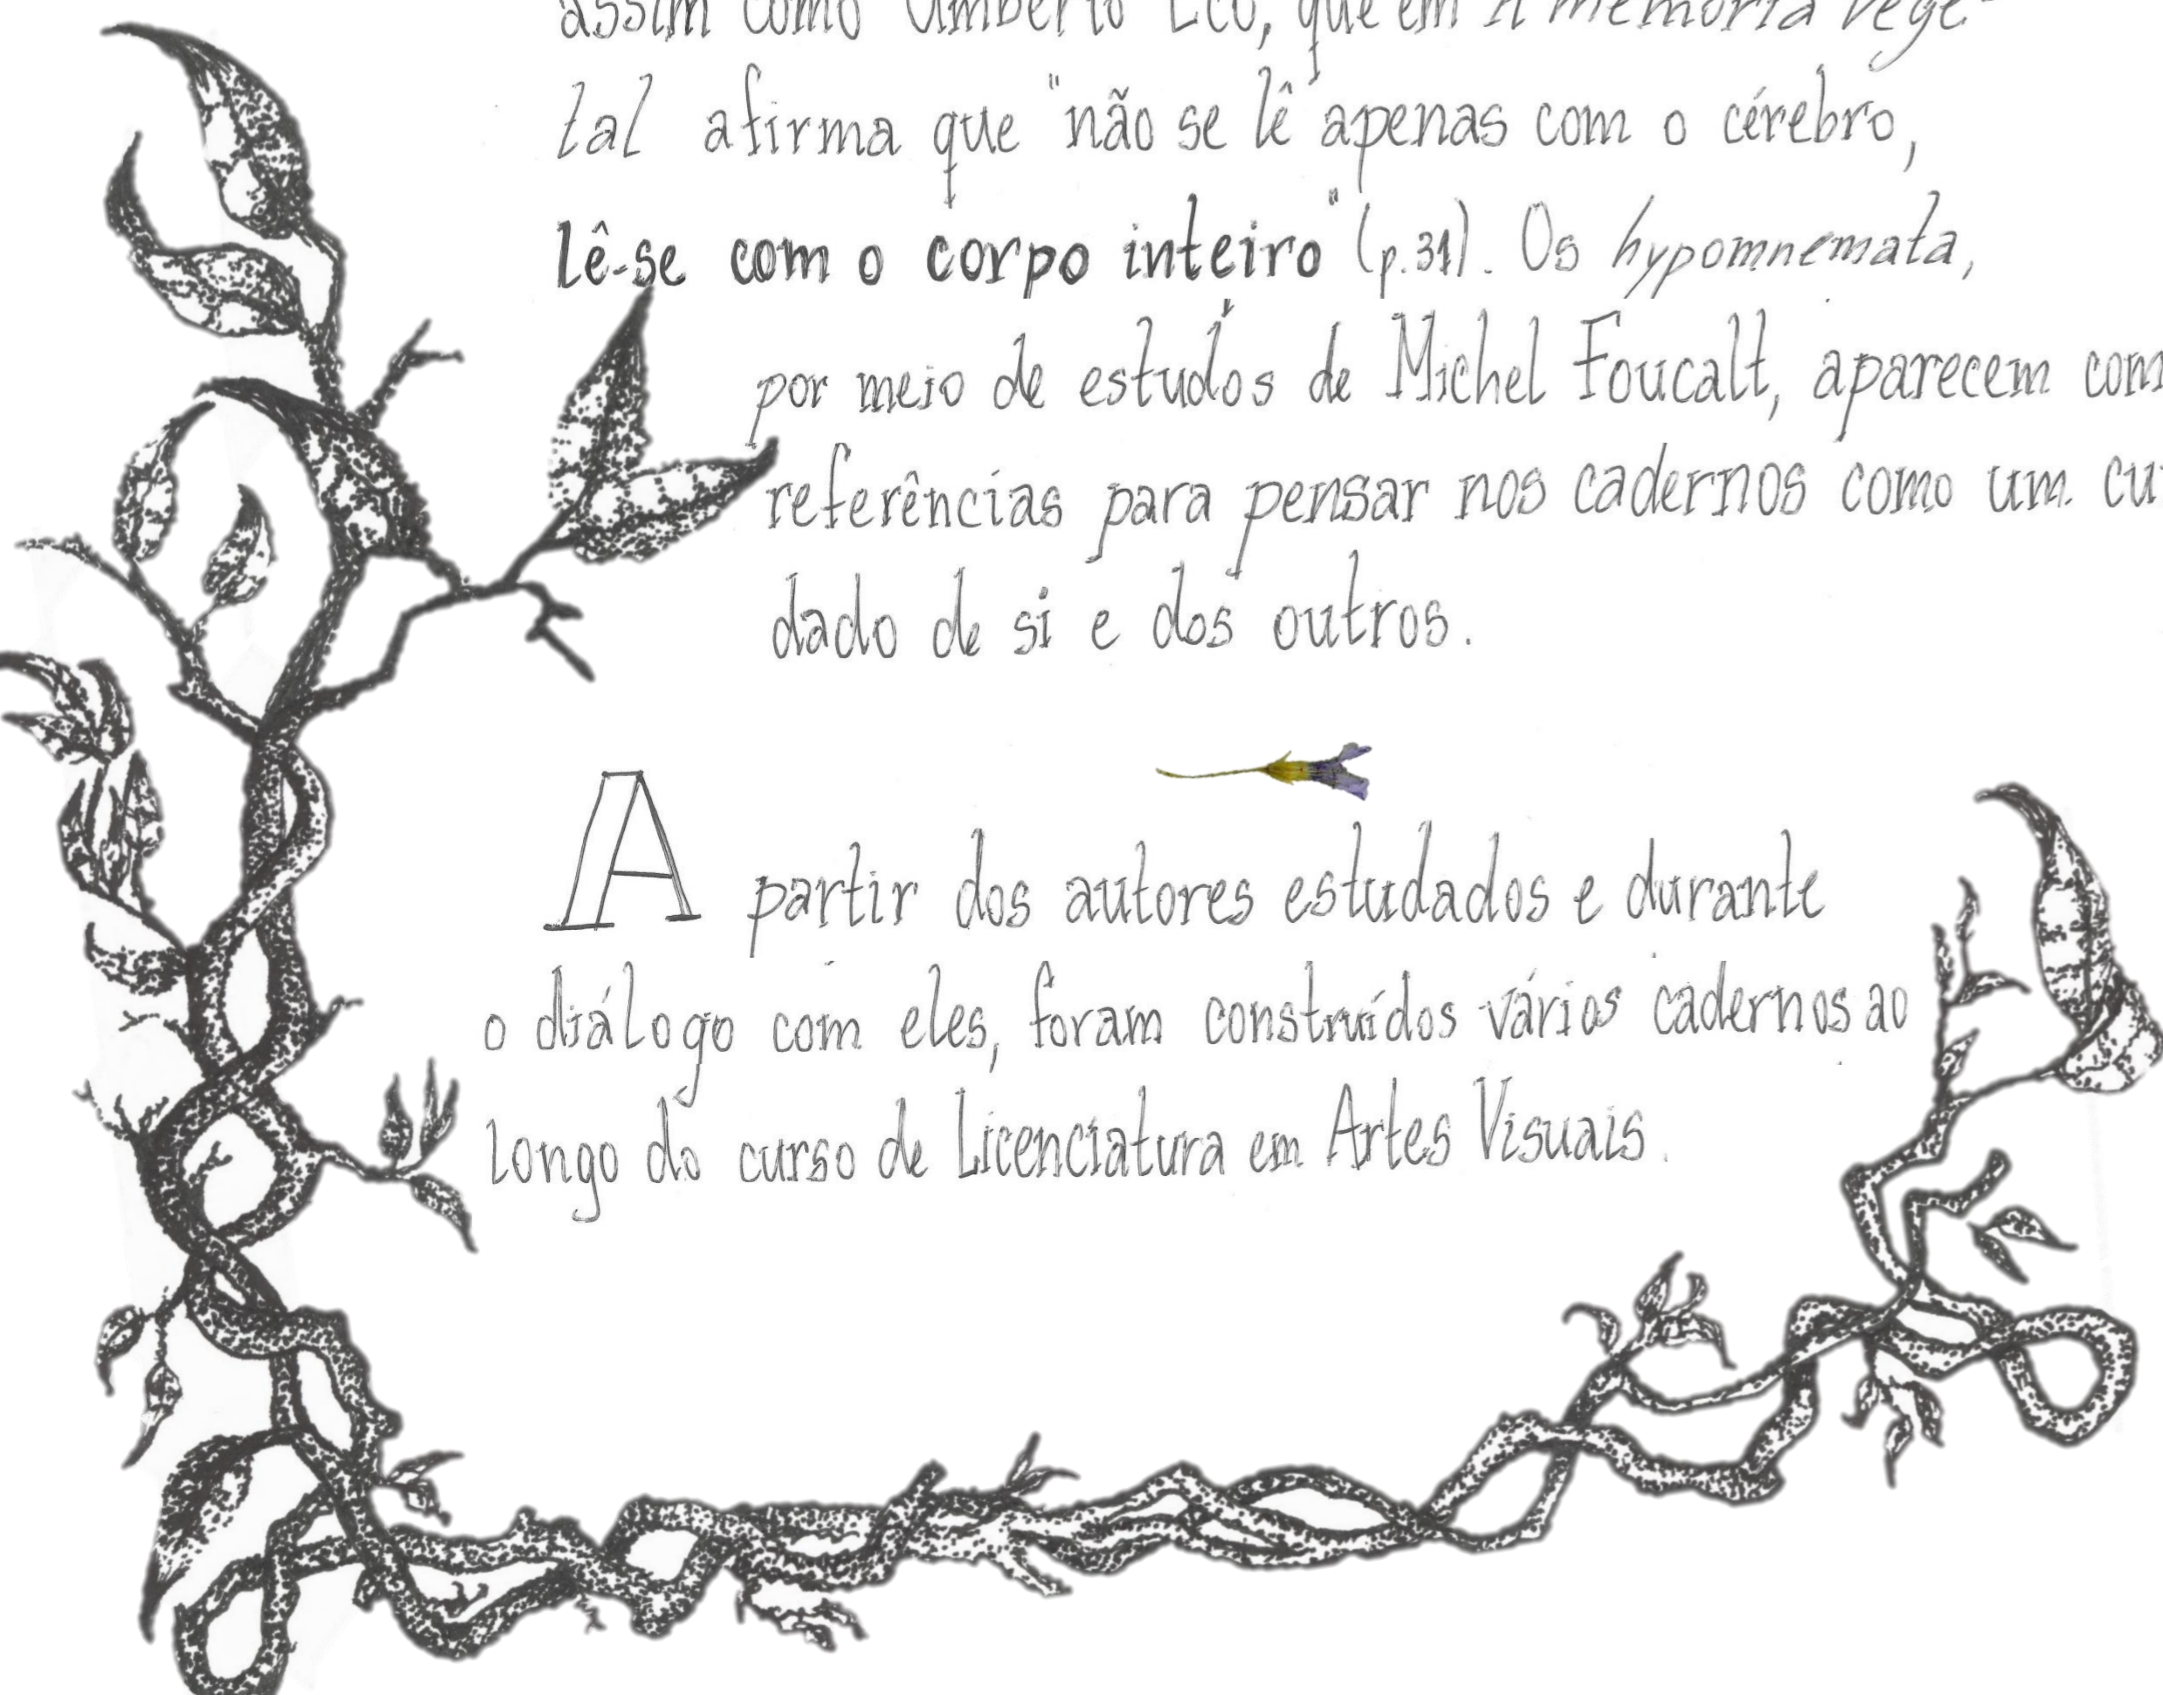 assim como Umberto Eco, que em A memória vege-
tal afirma que "não se lê apenas com o cérebro,
lê-se com o corpo inteiro" (p.31). Os hypomnemata,
por meio de estudos de Michel Foucalt, aparecem com
referências para pensar nos cadernos como um cu
dado de si e dos outros.
A partir dos autores estudados e durante
o diálogo com eles, foram construídos vários cadernos ao
longo do curso de Licenciatura em Artes Visuais.